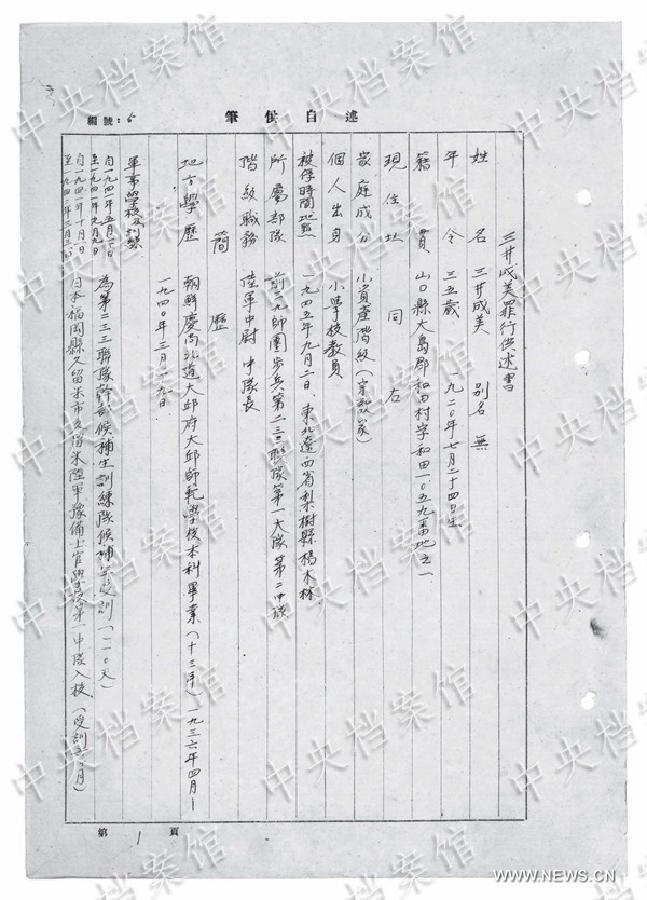 筆供自述
編號：6
三井成美罪行供述書
姓名 三井成美 別名 無
年令 三五歲 一九二〇年七月二十四日生
籍貫 山口縣大島郡和田村字和田一〇五九番地之一
現住址 同右
家庭成分 小資產階級
個人出身 小學校教員
被俘時間地點 一九四五年九月二日、東北遼西省梨樹縣楊木林
所屬部隊 前三九師團步兵第二三三聯隊第一大隊第二中隊
階級職務 陸軍中尉 中隊長
簡歷
地方學歷 朝鮮慶尚北道大邱府大邱師範學校本科畢業（十三年）一九三六年四月—
一九四〇年三月十九日
軍事學校及訓練
自一九四一年五月二〇日
至一九四一年九月九日 為第二三三聯隊幹部候補生訓練隊候補生受訓（一一〇天）
自一九四一年十月一日
至一九四二年三月三一日 日本福岡縣久留米市久留米陸軍豫備士官學校第一中隊入校（受訓六個月）
第 1 頁
中央档案馆
WWW.NEWS.CN